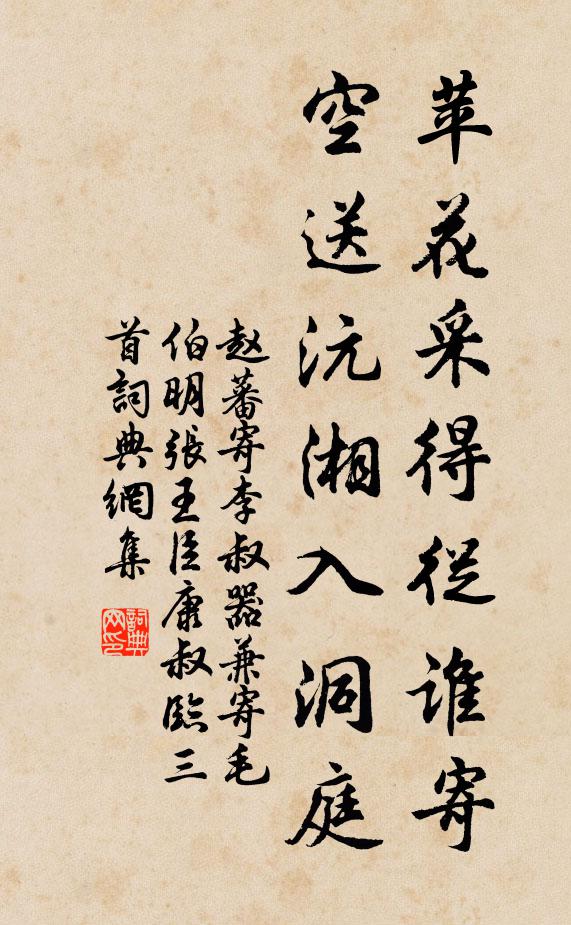 苹花采得従谁寄
空送沅湘入洞庭
赵蕃寄李叔器兼寄毛
伯明張王臣康叔臨三
首詞典網集
詞典
网印